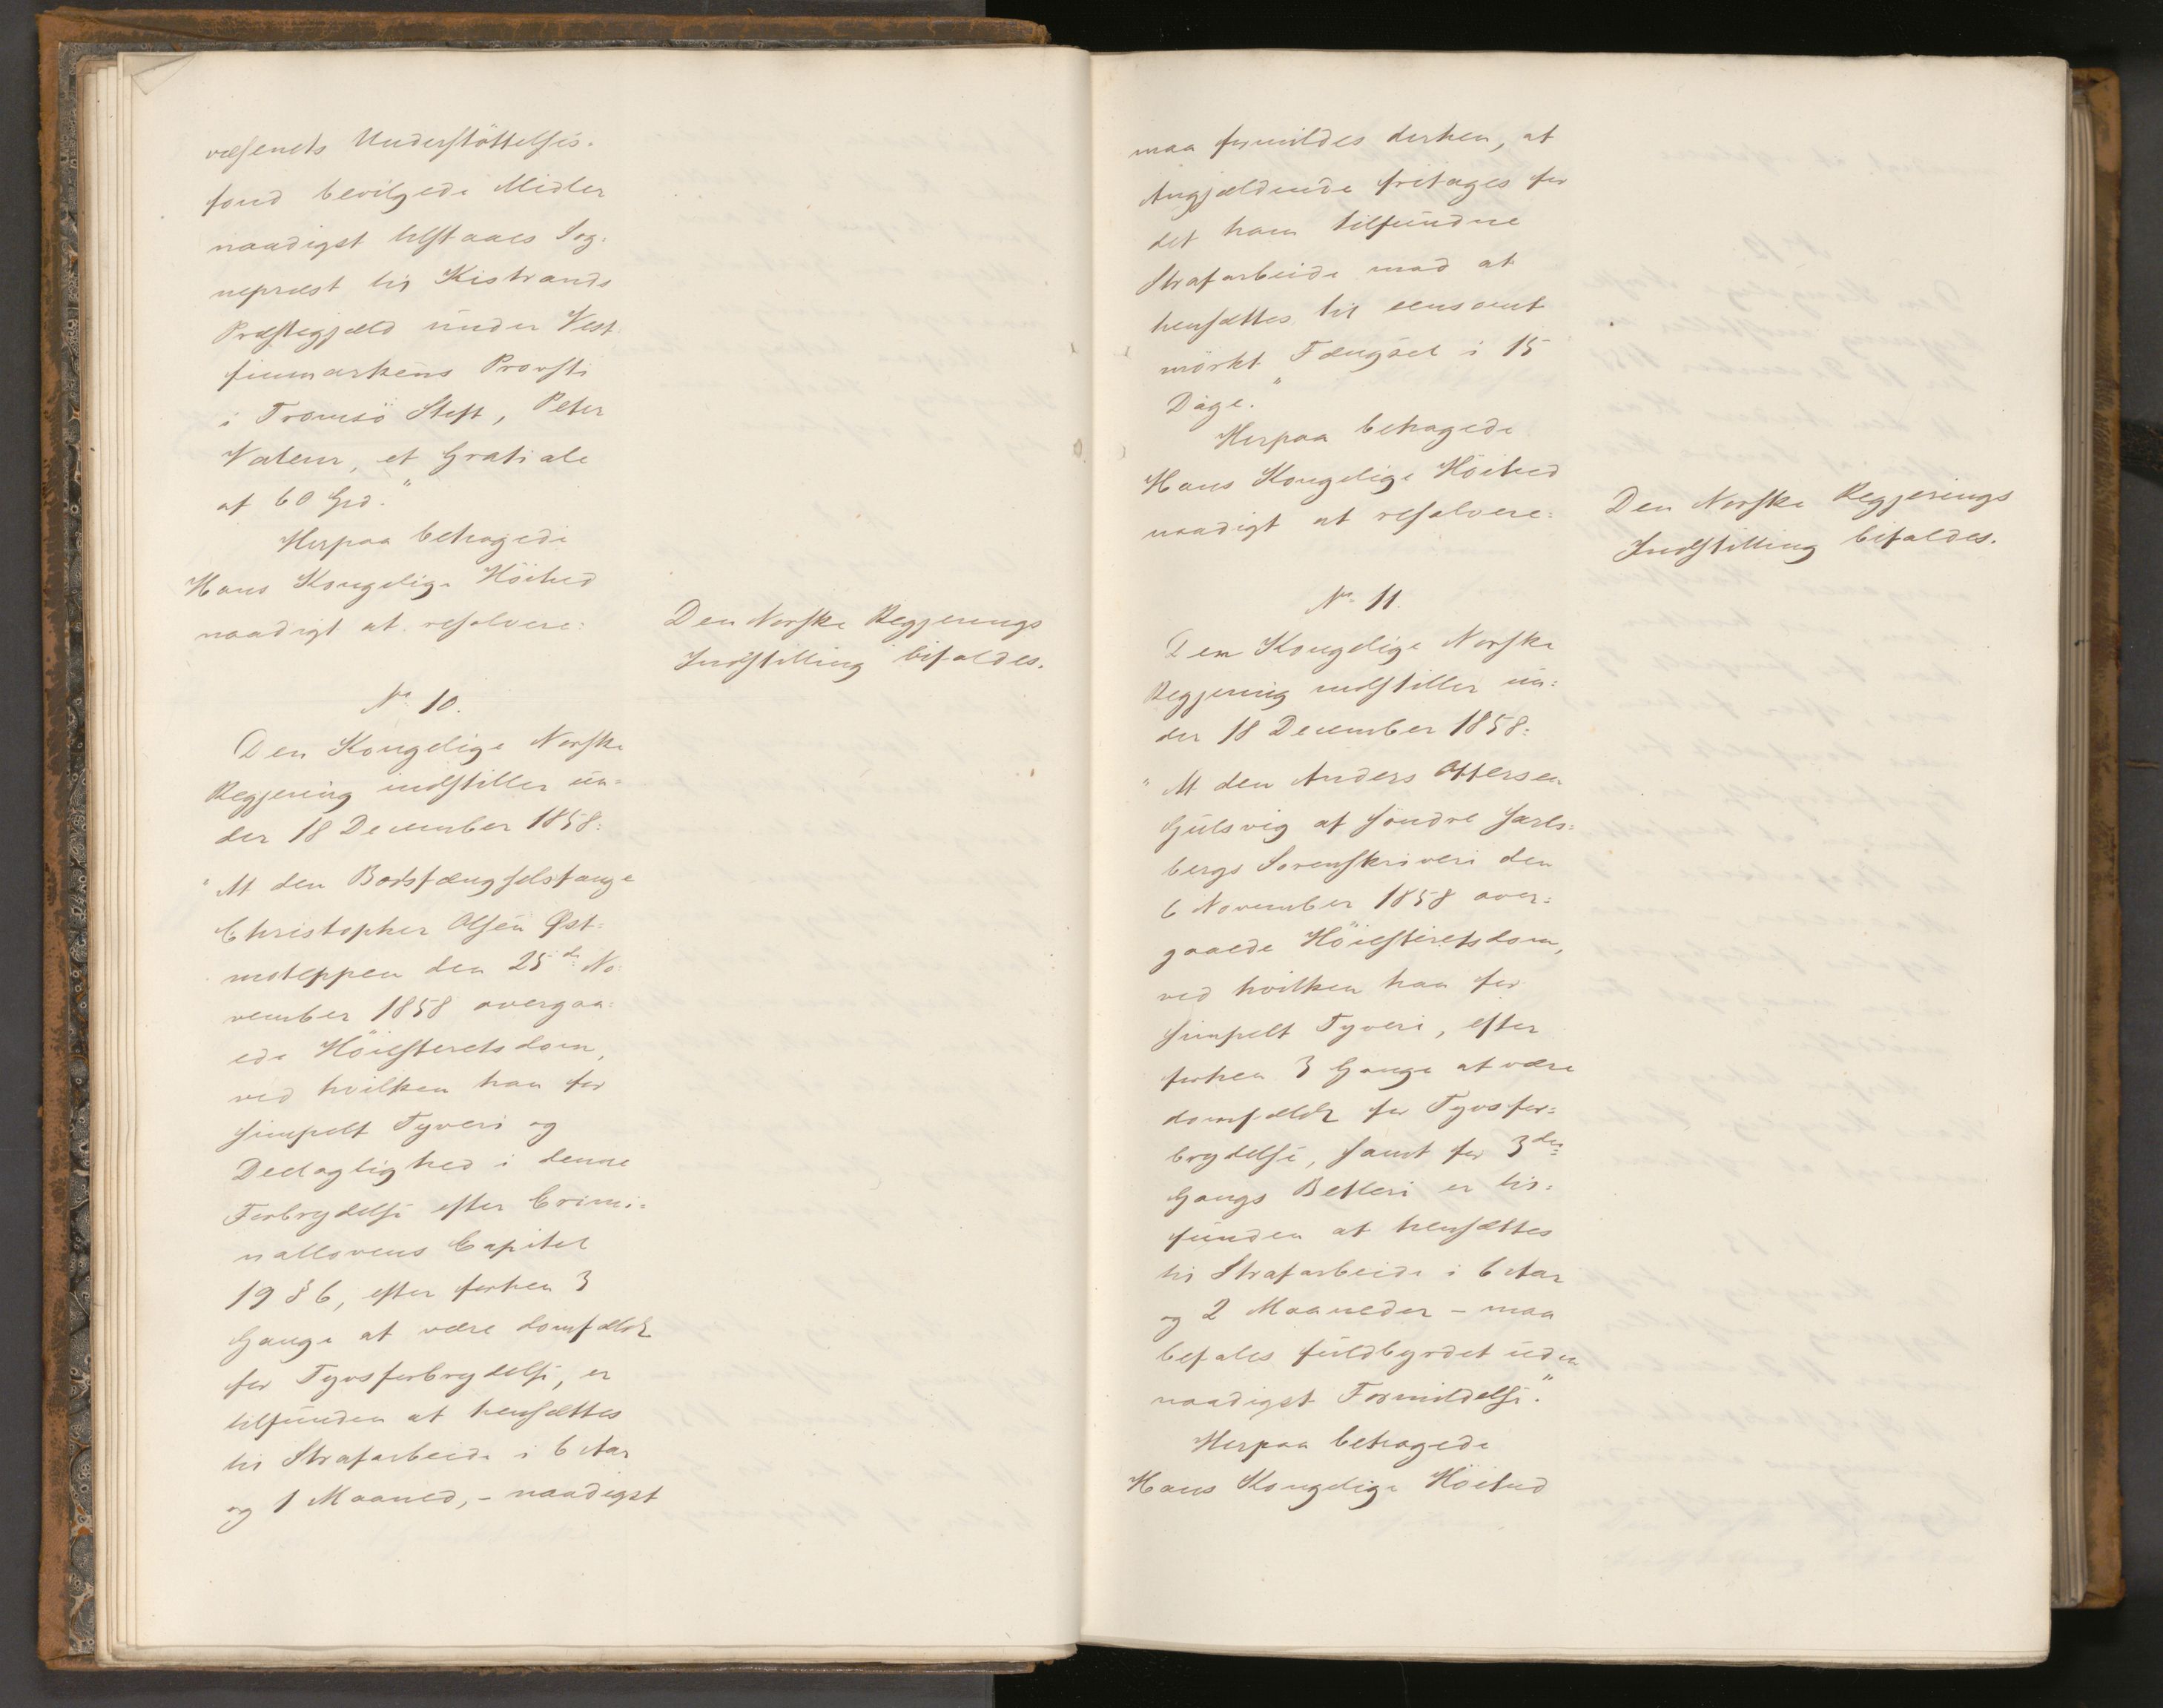 væsenets Understöttelses-
fond bevilgede Midler
naadigst tilstaaes Sog-
nepræst til Kistrands
Præstegjæld under Vest
finmarkens Provsti
i Tromsö Stift, Peter
Valeur, et Gratiale
af 60 Spd."
Herpaa behagede
Hans Kongelige Höihed
naadigt at resolvere:
Den Norske Regjerings
Indstilling bifaldes.
No 10.
Den Kongelige Norske
Regjering indstiller un-
der 18 December 1858:
"At den Bodsfængselsfange
Christopher Olsen Øst-
moteppen den 25de No-
vember 1858 overgaa-
ede Höiesteretsdom,
ved hvilken han for
simpelt Tyveri og
Deelagtighed i denne
Forbrydelse efter Crimi-
nallovens Capitel
19 § 6, efter forhen 3
Gange at være domfældt
for Tyvsforbrydelse, er
tilfunden at hensættes
til Strafarbeide i 6 Aar
og 1 Maaned, - naadigst
maa formildes derhen, at
Angjældende fritages for
det ham tilfundne
Strafarbeide mod at
hensættes til eensomt
mörkt Fængsel i 15
Dage."
Herpaa behagede
Hans Kongelige Höihed
naadigt at resolvere:
Den Norske Regjerings
Indstilling bifaldes.
No 11.
Den Kongelige Norske
Regjering indstiller un-
der 18 December 1858:
"At den Anders Ottersen
Gulsvig af söndre Jarls-
bergs Sorenskriveri den
6 November 1858 over-
gaaede Höiesteretsdom,
ved hvilken han for
simpelt Tyveri, efter
forhen 3 Gange at være
domfældt for Tyvsfor-
brydelse, samt for 3die
Gangs Betleri er til-
funden at hensættes
til Strafarbeide i 6 Aar
og 2 Maaneder - maa
befales fuldbyrdet uden
naadigst Formildelse."
Herpaa behagede
Hans Kongelige Höihed